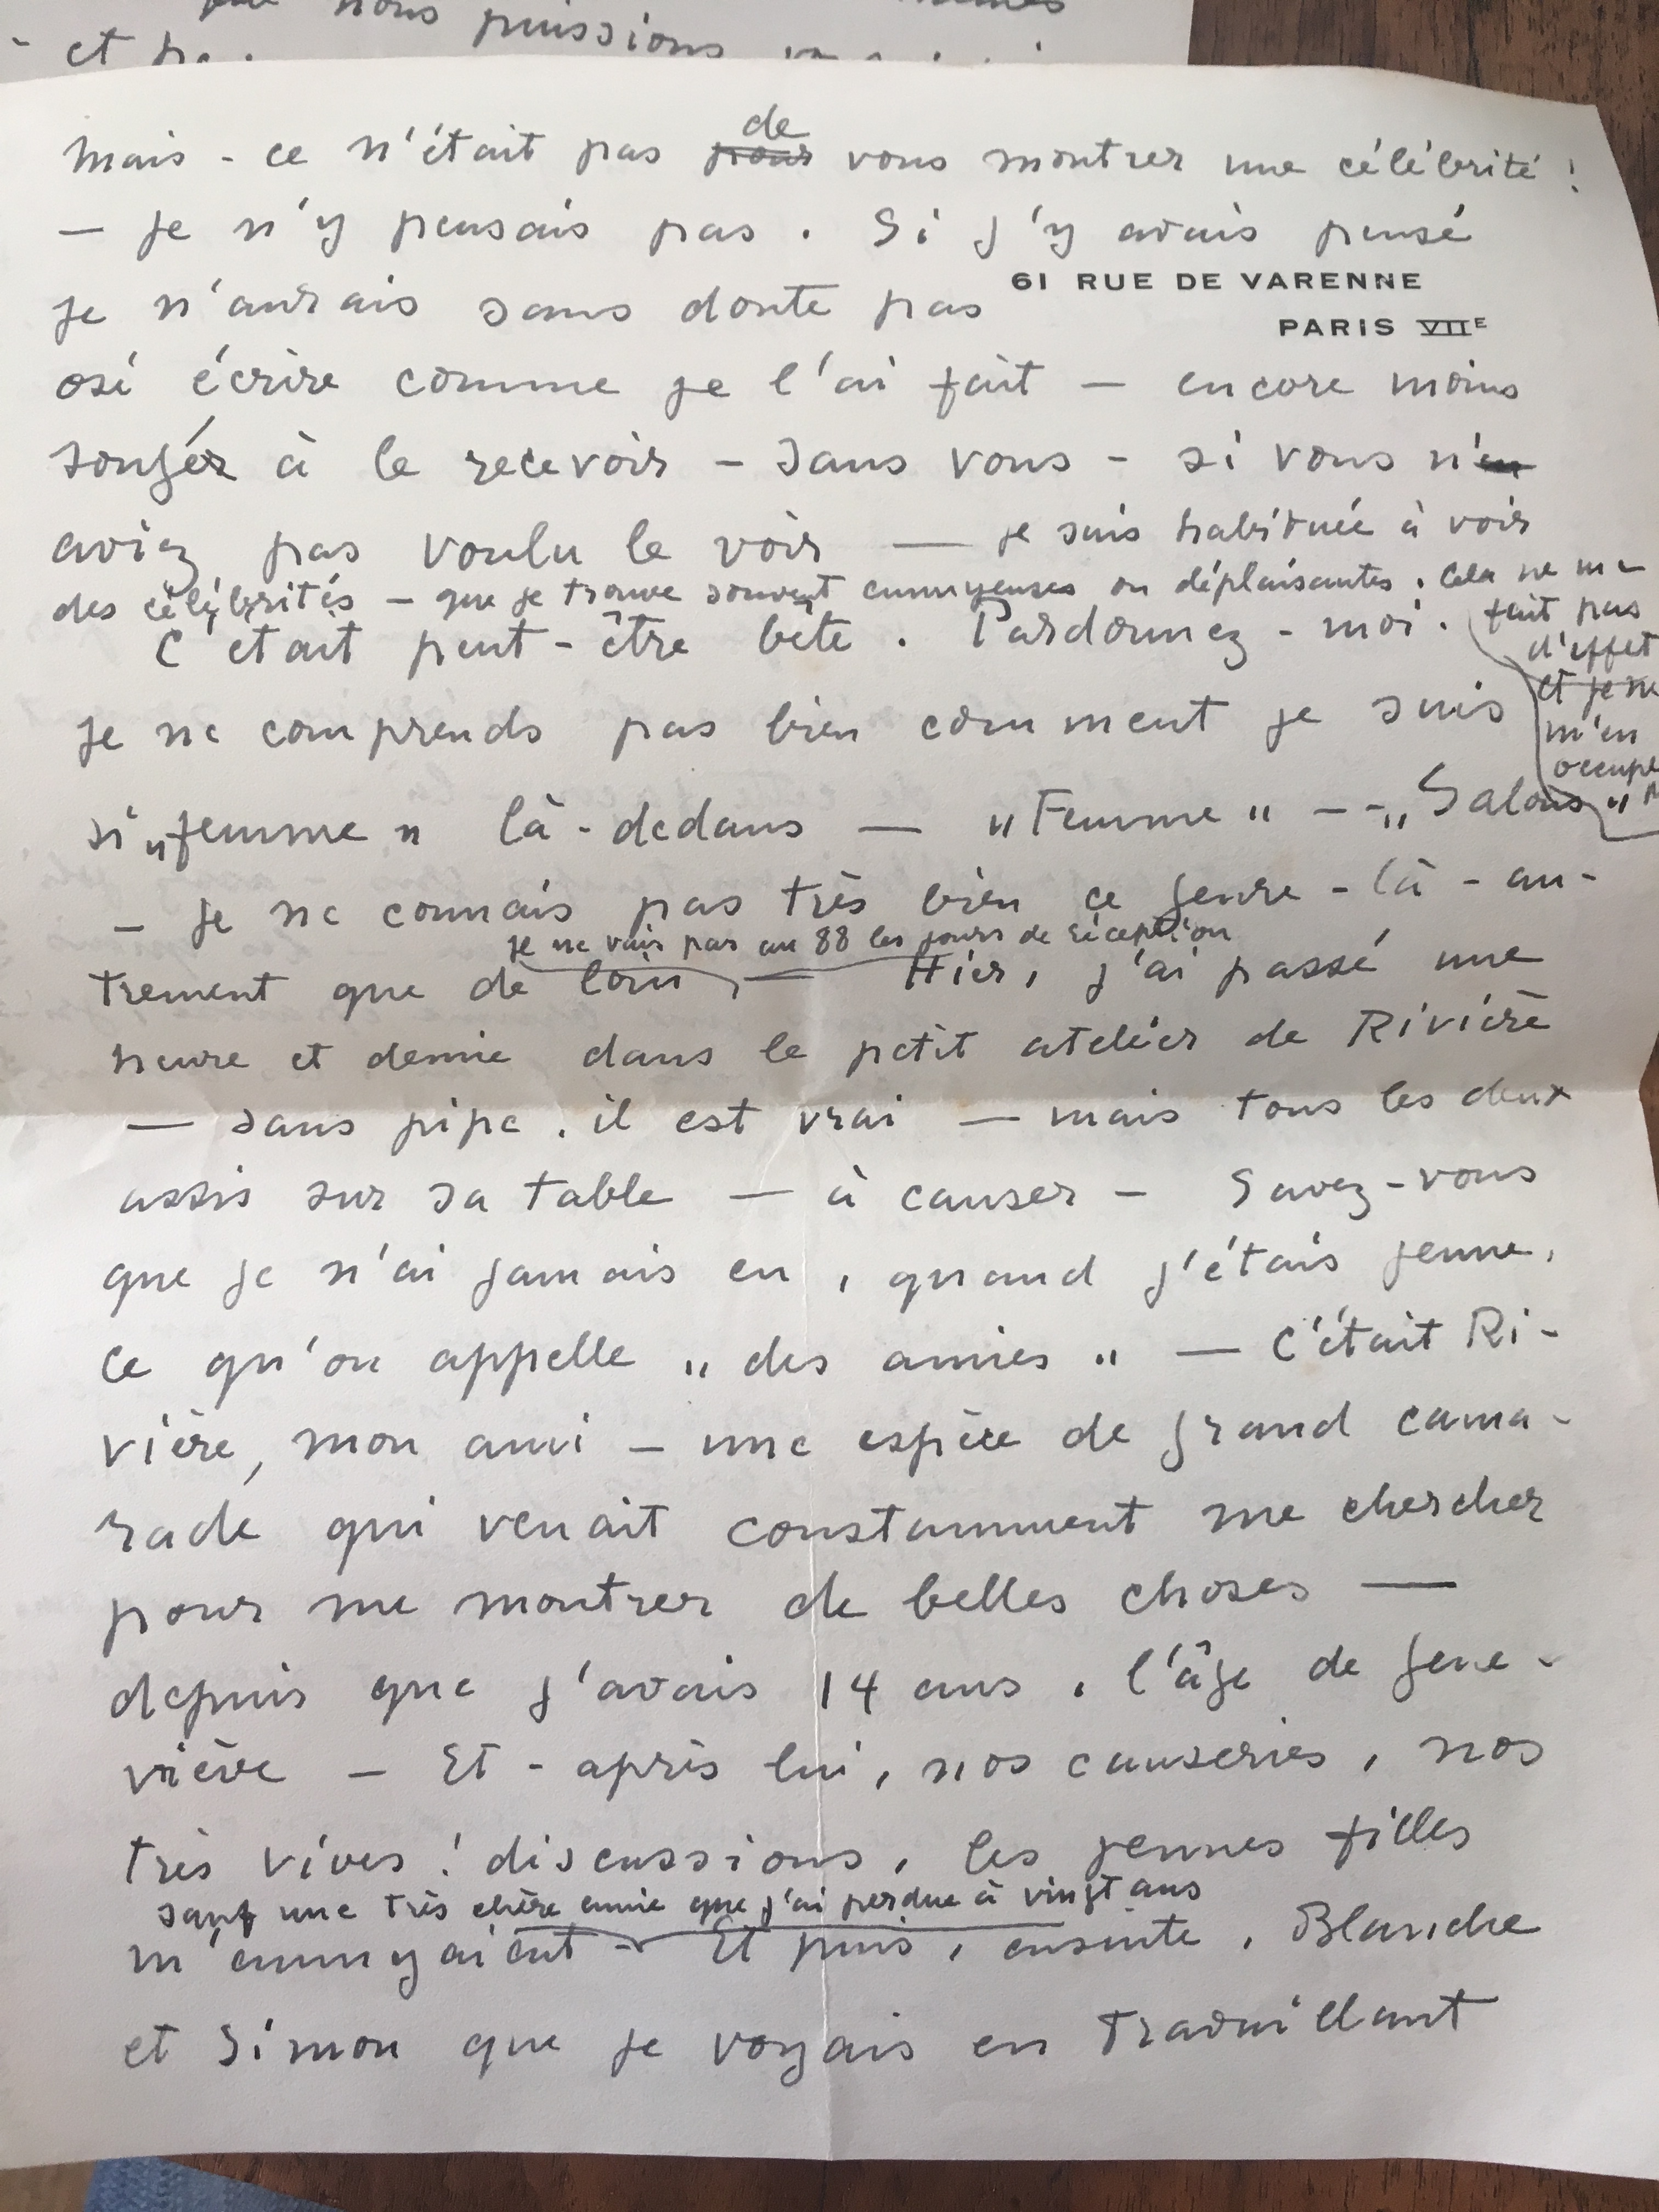 nous puissions
et
de
Mais - ce n'était pas pour vous montrer une célébrité !
— je n'y pensais pas . Si j'y avais pensé
61 RUE DE VARENNE
PARIS VIIE
je n'aurais sans doute pas
osé écrire comme je l'ai fait — encore moins
songer à le recevoir – sans vous – si vous n'en
aviez pas voulu le voir — je suis habituée à voir
des célébrités – que je trouve souvent ennuyeuses ou déplaisantes . Cela ne me
fait pas
d'effet
et je ne
m'en
occupe
C'était peut-être bête . Pardonnez-moi .
je ne comprends pas bien comment je suis
si „femme" là-dedans — „Femme" -- „Salons"
– je ne connais pas très bien ce genre-là-au-
je ne vais pas au 88 les jours de réception
trement que de loin, — Hier, j'ai passé une
heure et demie dans le petit atelier de Rivière
— sans pipe . il est vrai — mais tous les deux
assis sur sa table — à causer – Savez-vous
que je n'ai jamais eu , quand j'étais jeune ,
ce qu'on appelle „ des amies " — C'était Ri-
vière, mon ami – une espèce de grand cama-
rade qui venait constamment me chercher
pour me montrer de belles choses —
depuis que j'avais 14 ans , l'âge de Gene-
viève – Et - après lui , nos causeries , nos
très vives ! discussions , les jeunes filles
sauf une très chère amie que j'ai perdue à vingt ans
m'ennuyaient - Et puis , ensuite , Blanche
et Simon que je voyais en travaillant